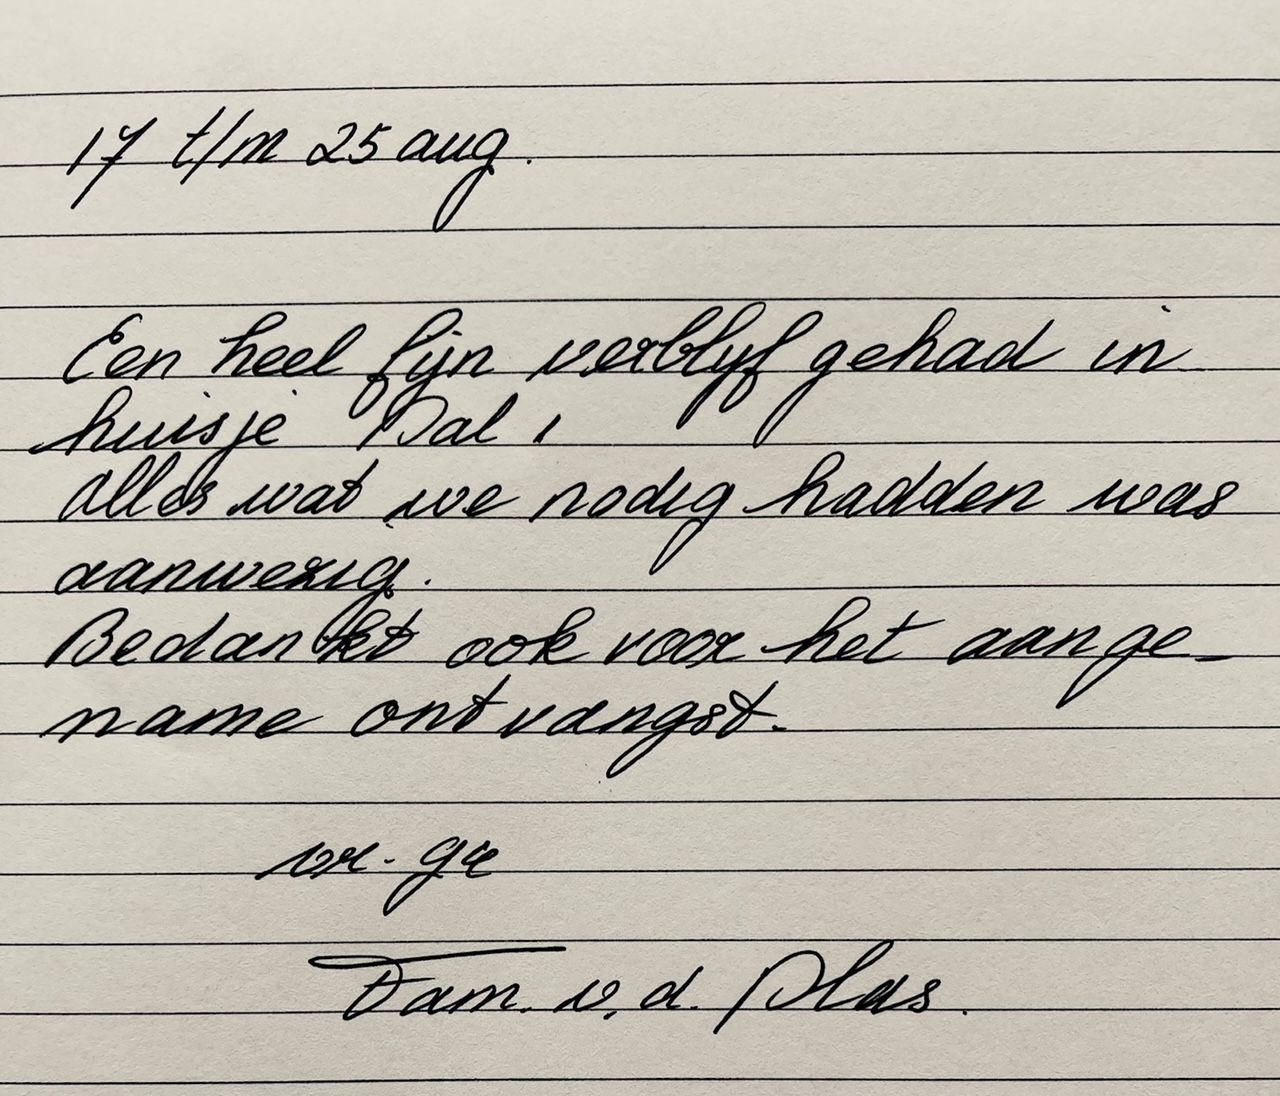 17 t/m 25 aug.
Een heel fijn verblijf gehad in
huisje Dal 1
alles wat we nodig hadden was
aanwezig.
Bedankt ook voor het aange-
name ontvangst.
vr. gr
Fam. v.d. Plas.